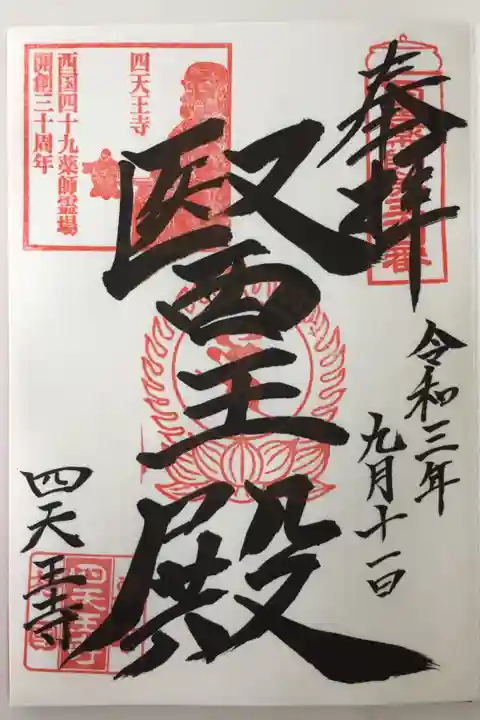 奉拝
令和三年
九月十一日
醫王殿
四天王寺
西国四十九薬師霊場
開創三十周年
四天王寺
四天王寺